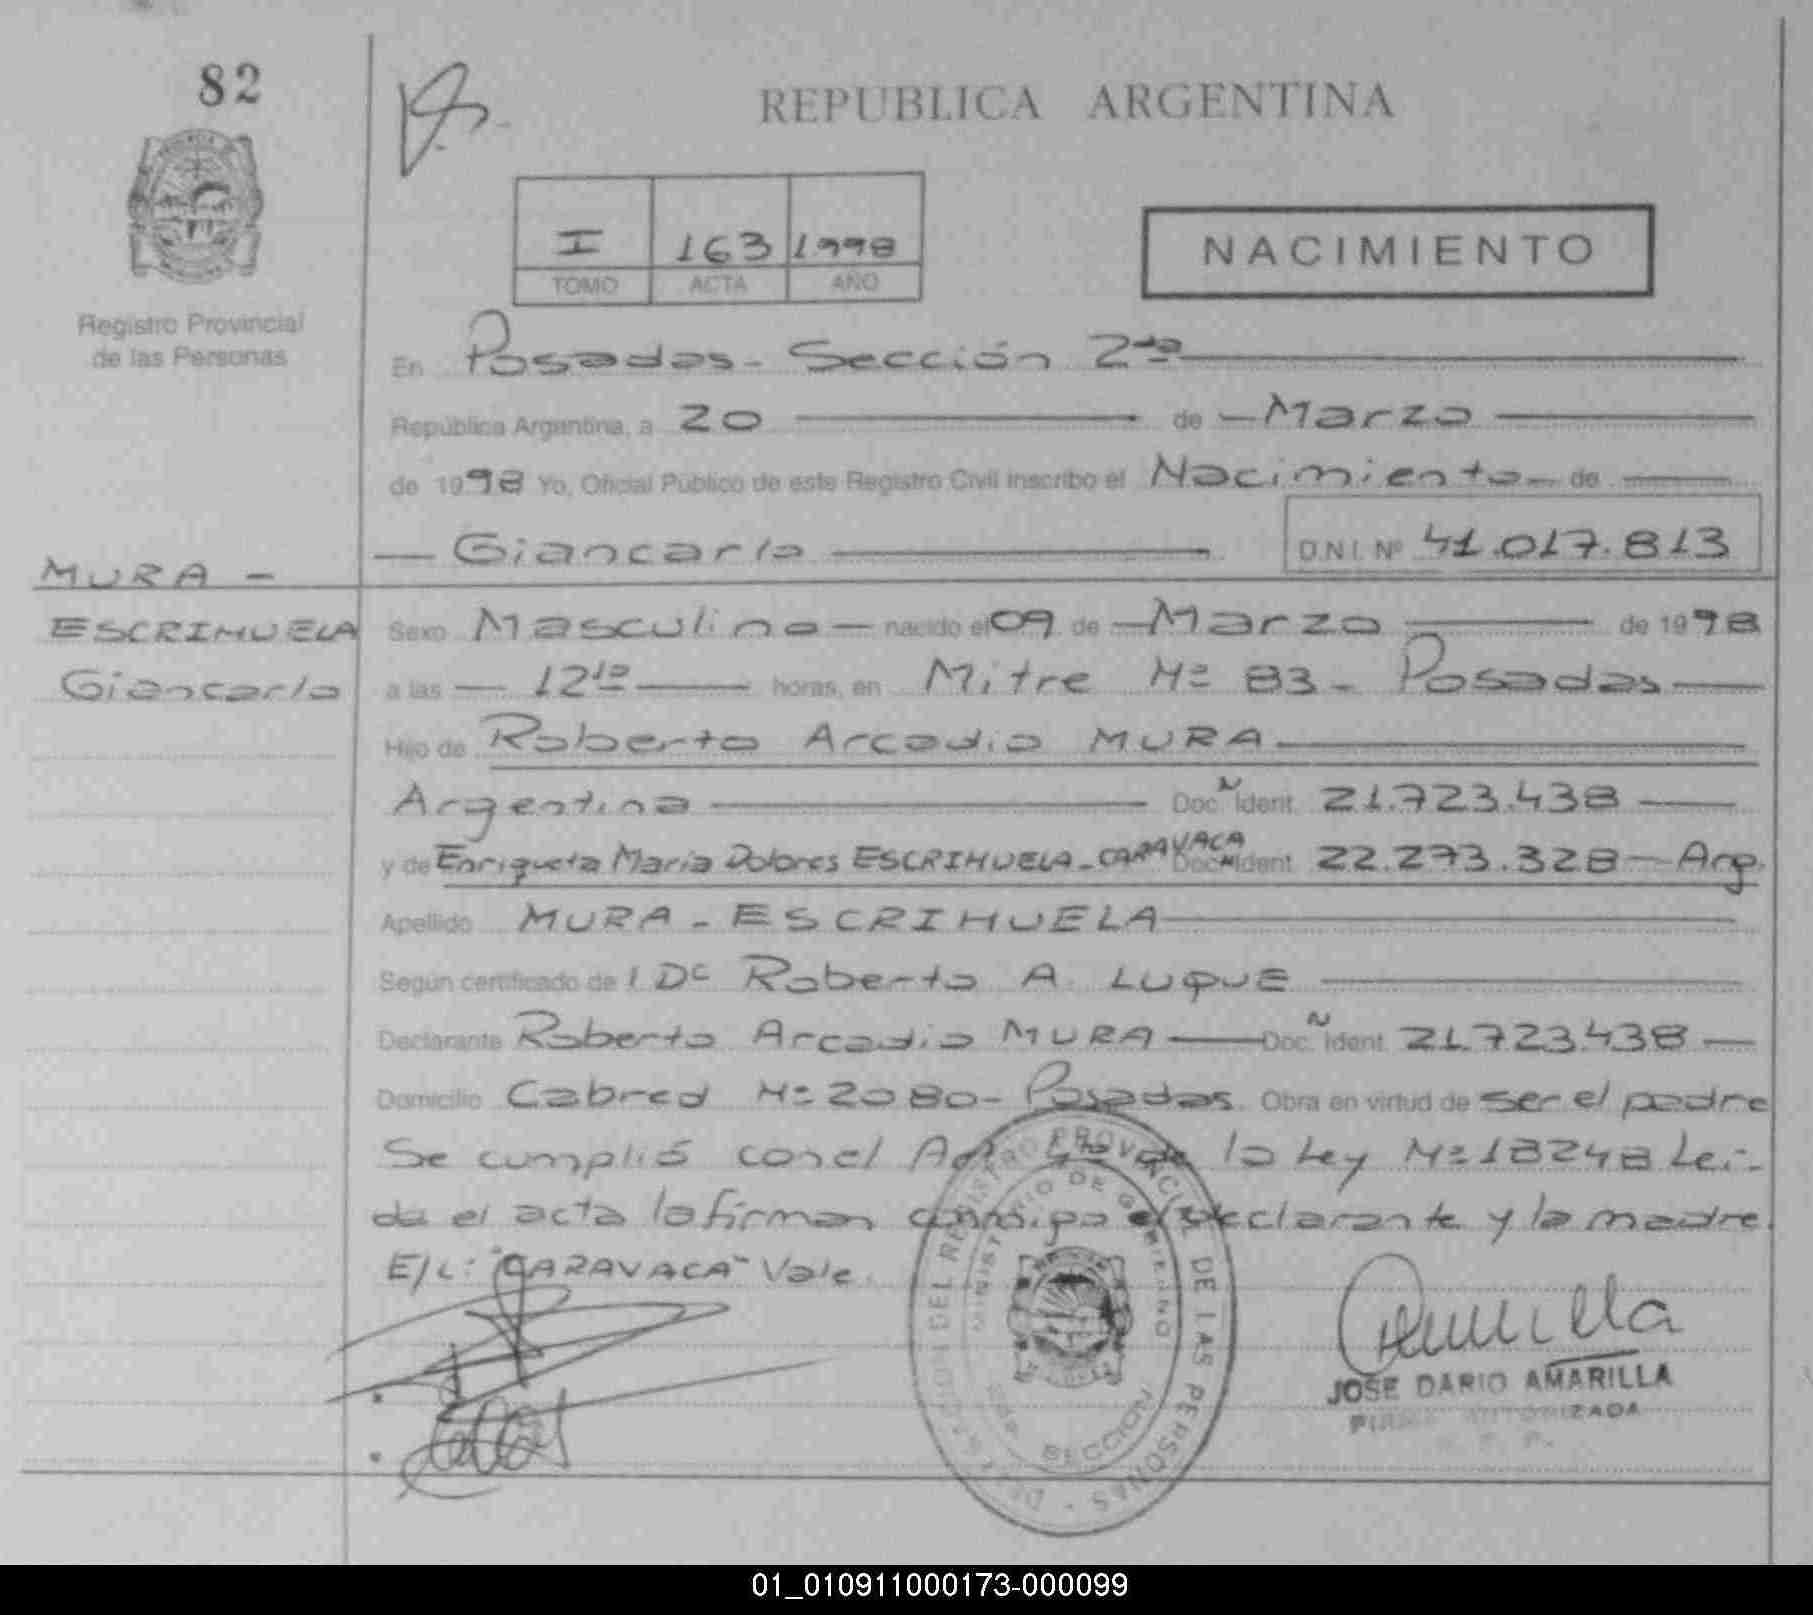 82
REPUBLICA ARGENTINA
I 163 1998
TOMO ACTA AÑO
NACIMIENTO
Registro Provincial
de las Personas
En Posadas - Sección 2da
República Argentina, a 20 de Marzo
de 1998 Yo, Oficial Público de este Registro Civil inscribo el Nacimiento de
Giancarlo D.N.I. Nº 41.017.813
MURA -
ESCRIHUELA
Giancarlo
Sexo Masculino nacido el 09 de Marzo de 1998
a las 12 10 horas, en Mitre Nº 83 - Posadas
Hijo de Roberto Arcadio MURA
Argentina Doc. N Ident. 21.723.438
y de Enriqueta María Dolores ESCRIHUELA - CARAVACA Doc. N Ident. 22.273.328 - Arg.
Apellido MURA - ESCRIHUELA
Según certificado de l Dr Roberto A. LUQUE
Declarante Roberto Arcadio MURA Doc. N Ident. 21.723.438
Domicilio Cabred Nº 2080 - Posadas. Obra en virtud de ser el padre
Se cumplió con el de la Ley Nº 18248 Leí-
da el acta la firman conmigo el declarante y la madre.
E/L: "CARAVACA" Vale.
REGISTRO PROVINCIAL DE LAS PERSONAS
MINISTERIO DE GOBIERNO
SECCION
JOSE DARIO AMARILLA
FIRMA AUTORIZADA
01_010911000173-000099